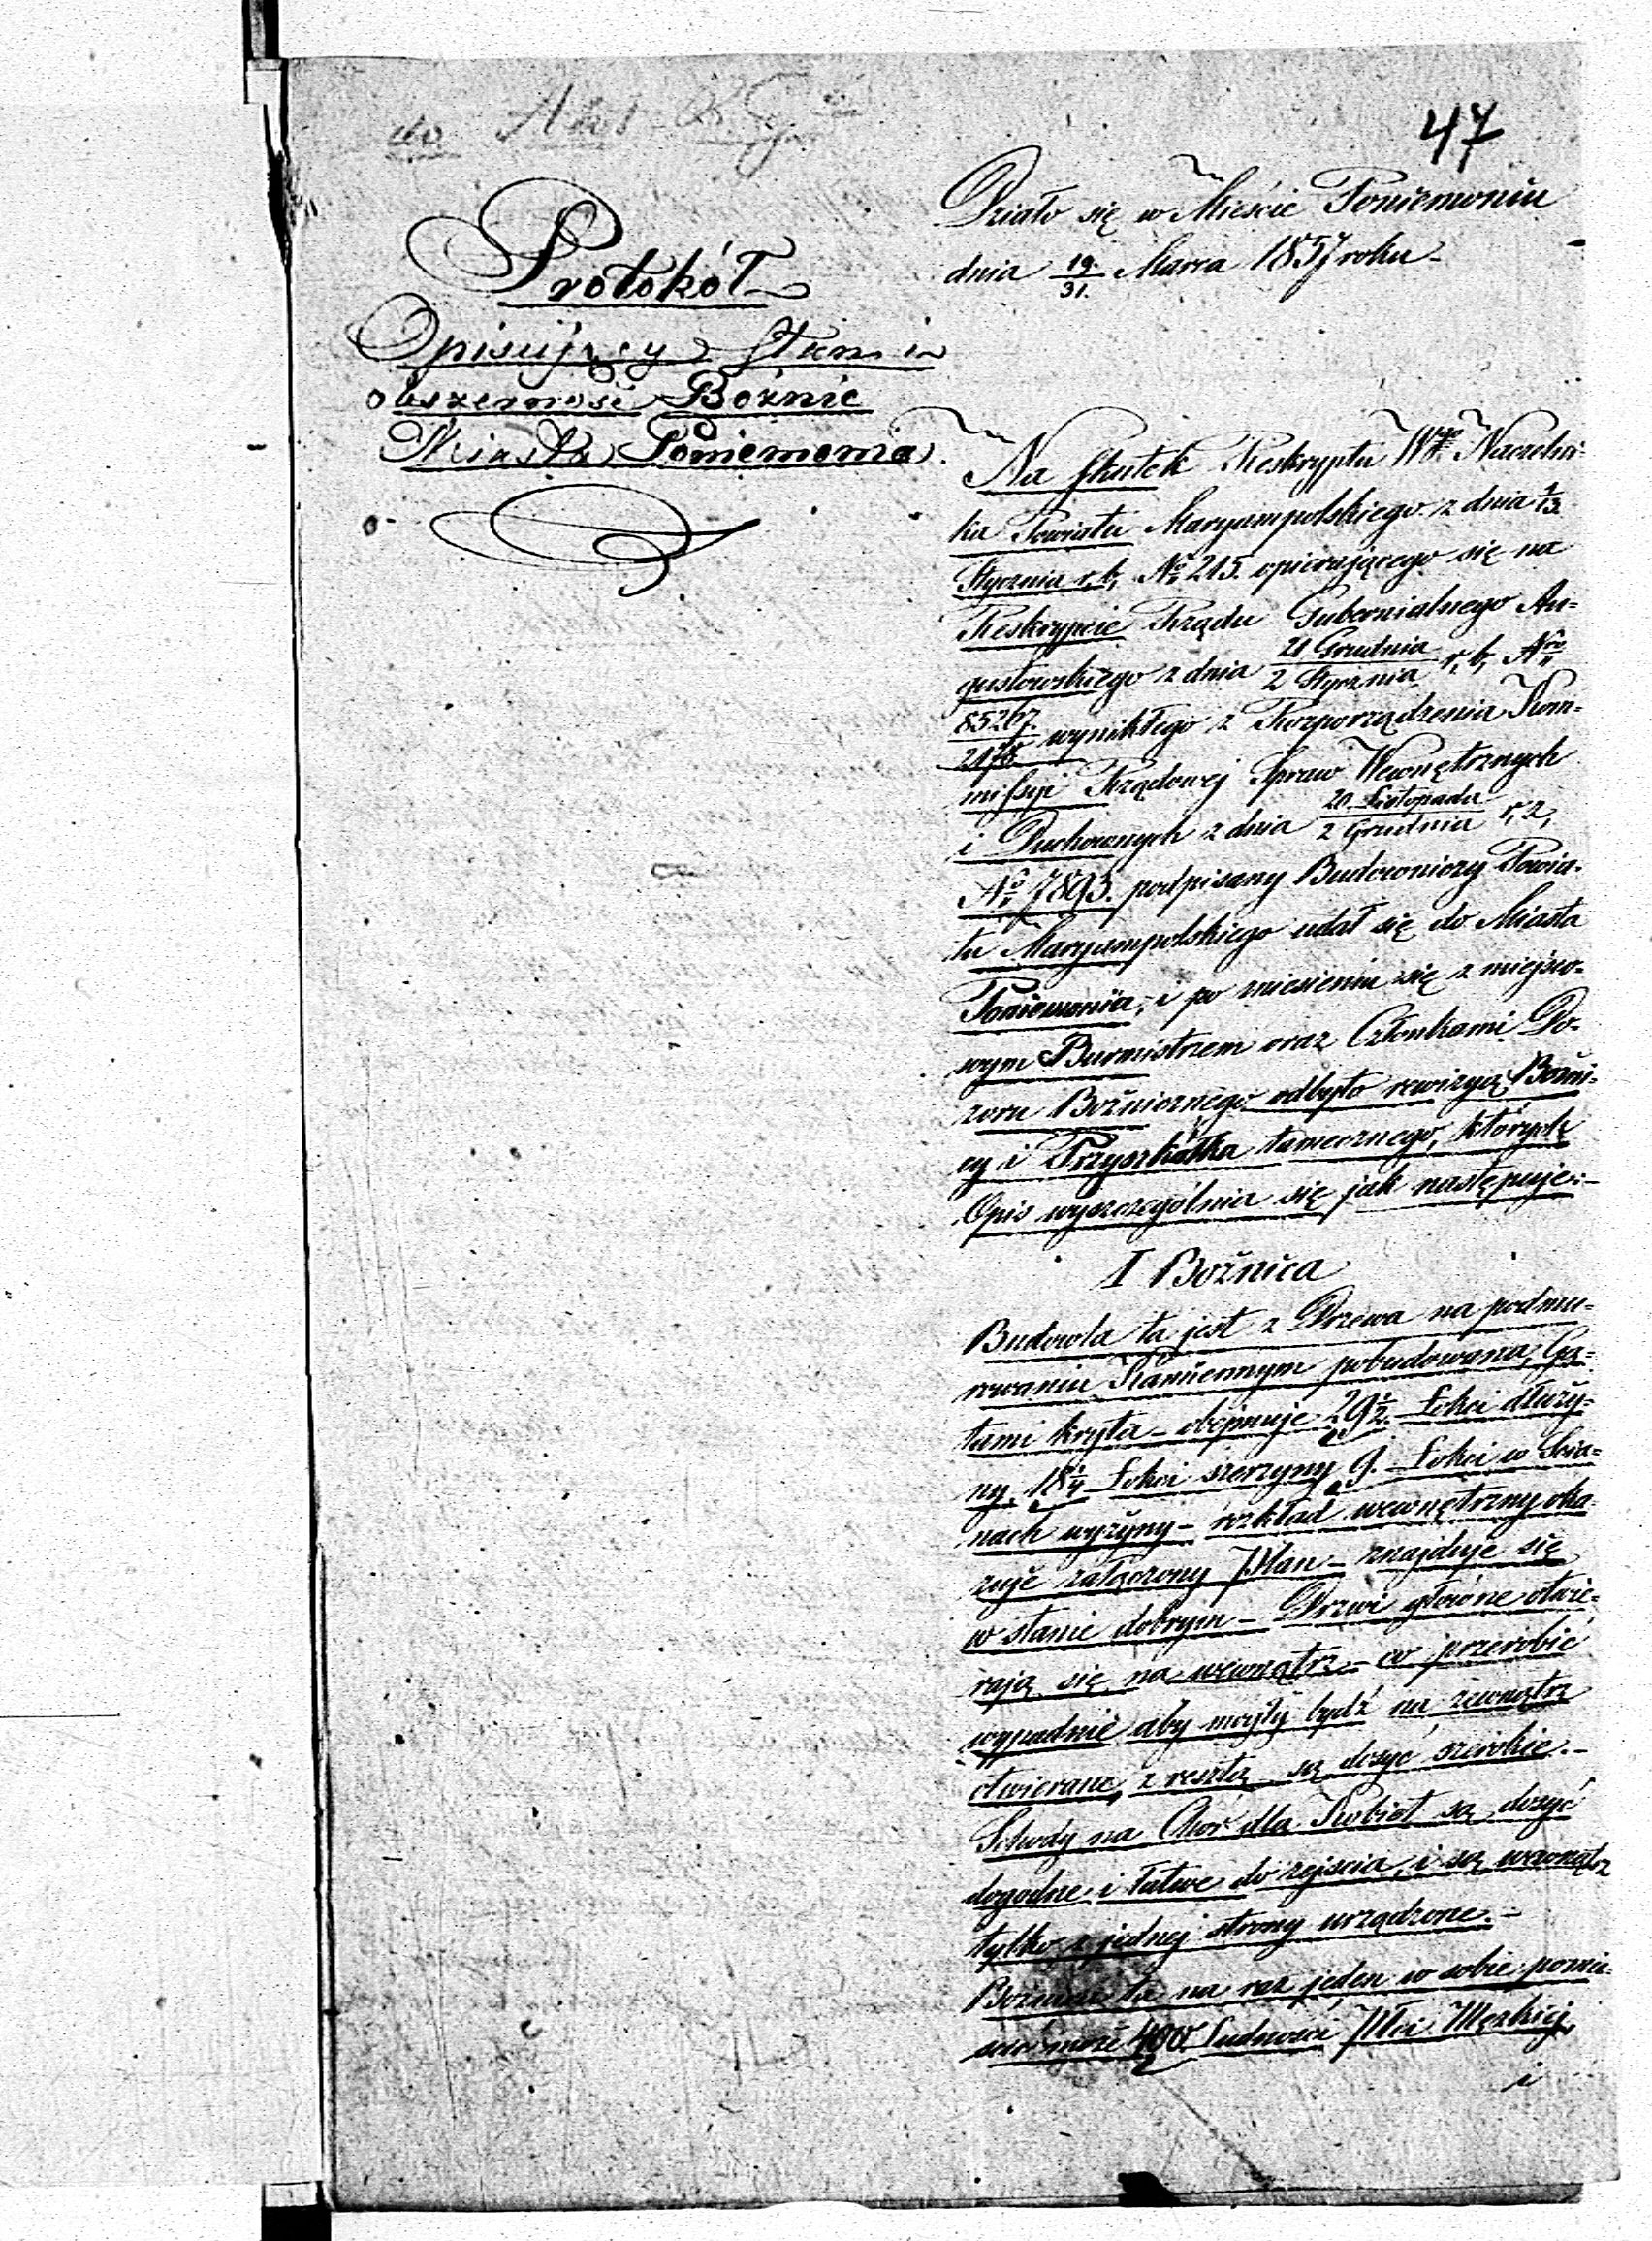 47
do Akt
Protokół
Opisujący Stan i
obszerność Bożnic
Miasta Poniemonia.
Działo się w Mieście Poniemoniu
dnia 19/31. Marca 1857 roku
Na skutek Reskryptu Naczelni-
ka Powiatu Maryampolskiego z dnia 1/13.
Stycznia r. b. No 215. opierającego się na
Reskrypcie Rządu Gubernialnego Au=
gustowskiego z dnia 21 Grudnia/2 Stycznia r. b. Nro
85267./2178 wynikłego z Rozporządzenia Kom=
missyi Rządowej Spraw Wewnętrznych
i Duchownych z dnia 20 Listopada/2 Grudnia r. z.
No 7893. podpisany Budowniczy Powia-
tu Maryampolskiego udał się do Miasta
Poniemonia, i po zniesieniu się z miejsco-
wym Burmistrzem oraz Członkami Do-
zoru Bożniczego odbyło rewizyą Bożni-
cy i Przyszkółka tamecznego, których
Opis wyszczególnia się jak następuje:-
I Bożnica
Budowla ta jest z Drzewa na podmu=
rowaniu Kamiennym pobudowana, Gą=
tami kryta - obejmuje 29½. Łokci dłuży=
ny, 18¼ Łokci szerzyny 9. Łokci w Ścia=
nach wyżyny - rozkład wewnętrzny oka=
zuje załączony Plan - znajduje się
w stanie dobrym - Drzwi główne otwie=
rają się na wewnątrz - co przerobić
wypadnie aby mogły bydź na zewnątrz
otwierane, z resztą są dosyć szerokie.-
Schody na Chór dla Kobiet są dosyć
dogodne i łatwe do zejścia, i są wewnątrz
tylko z jednej strony urządzone.-
Bożnica ta na raz jeden w sobie pomie-
ścić może 400 Ludności Płci Męzkiej,
i